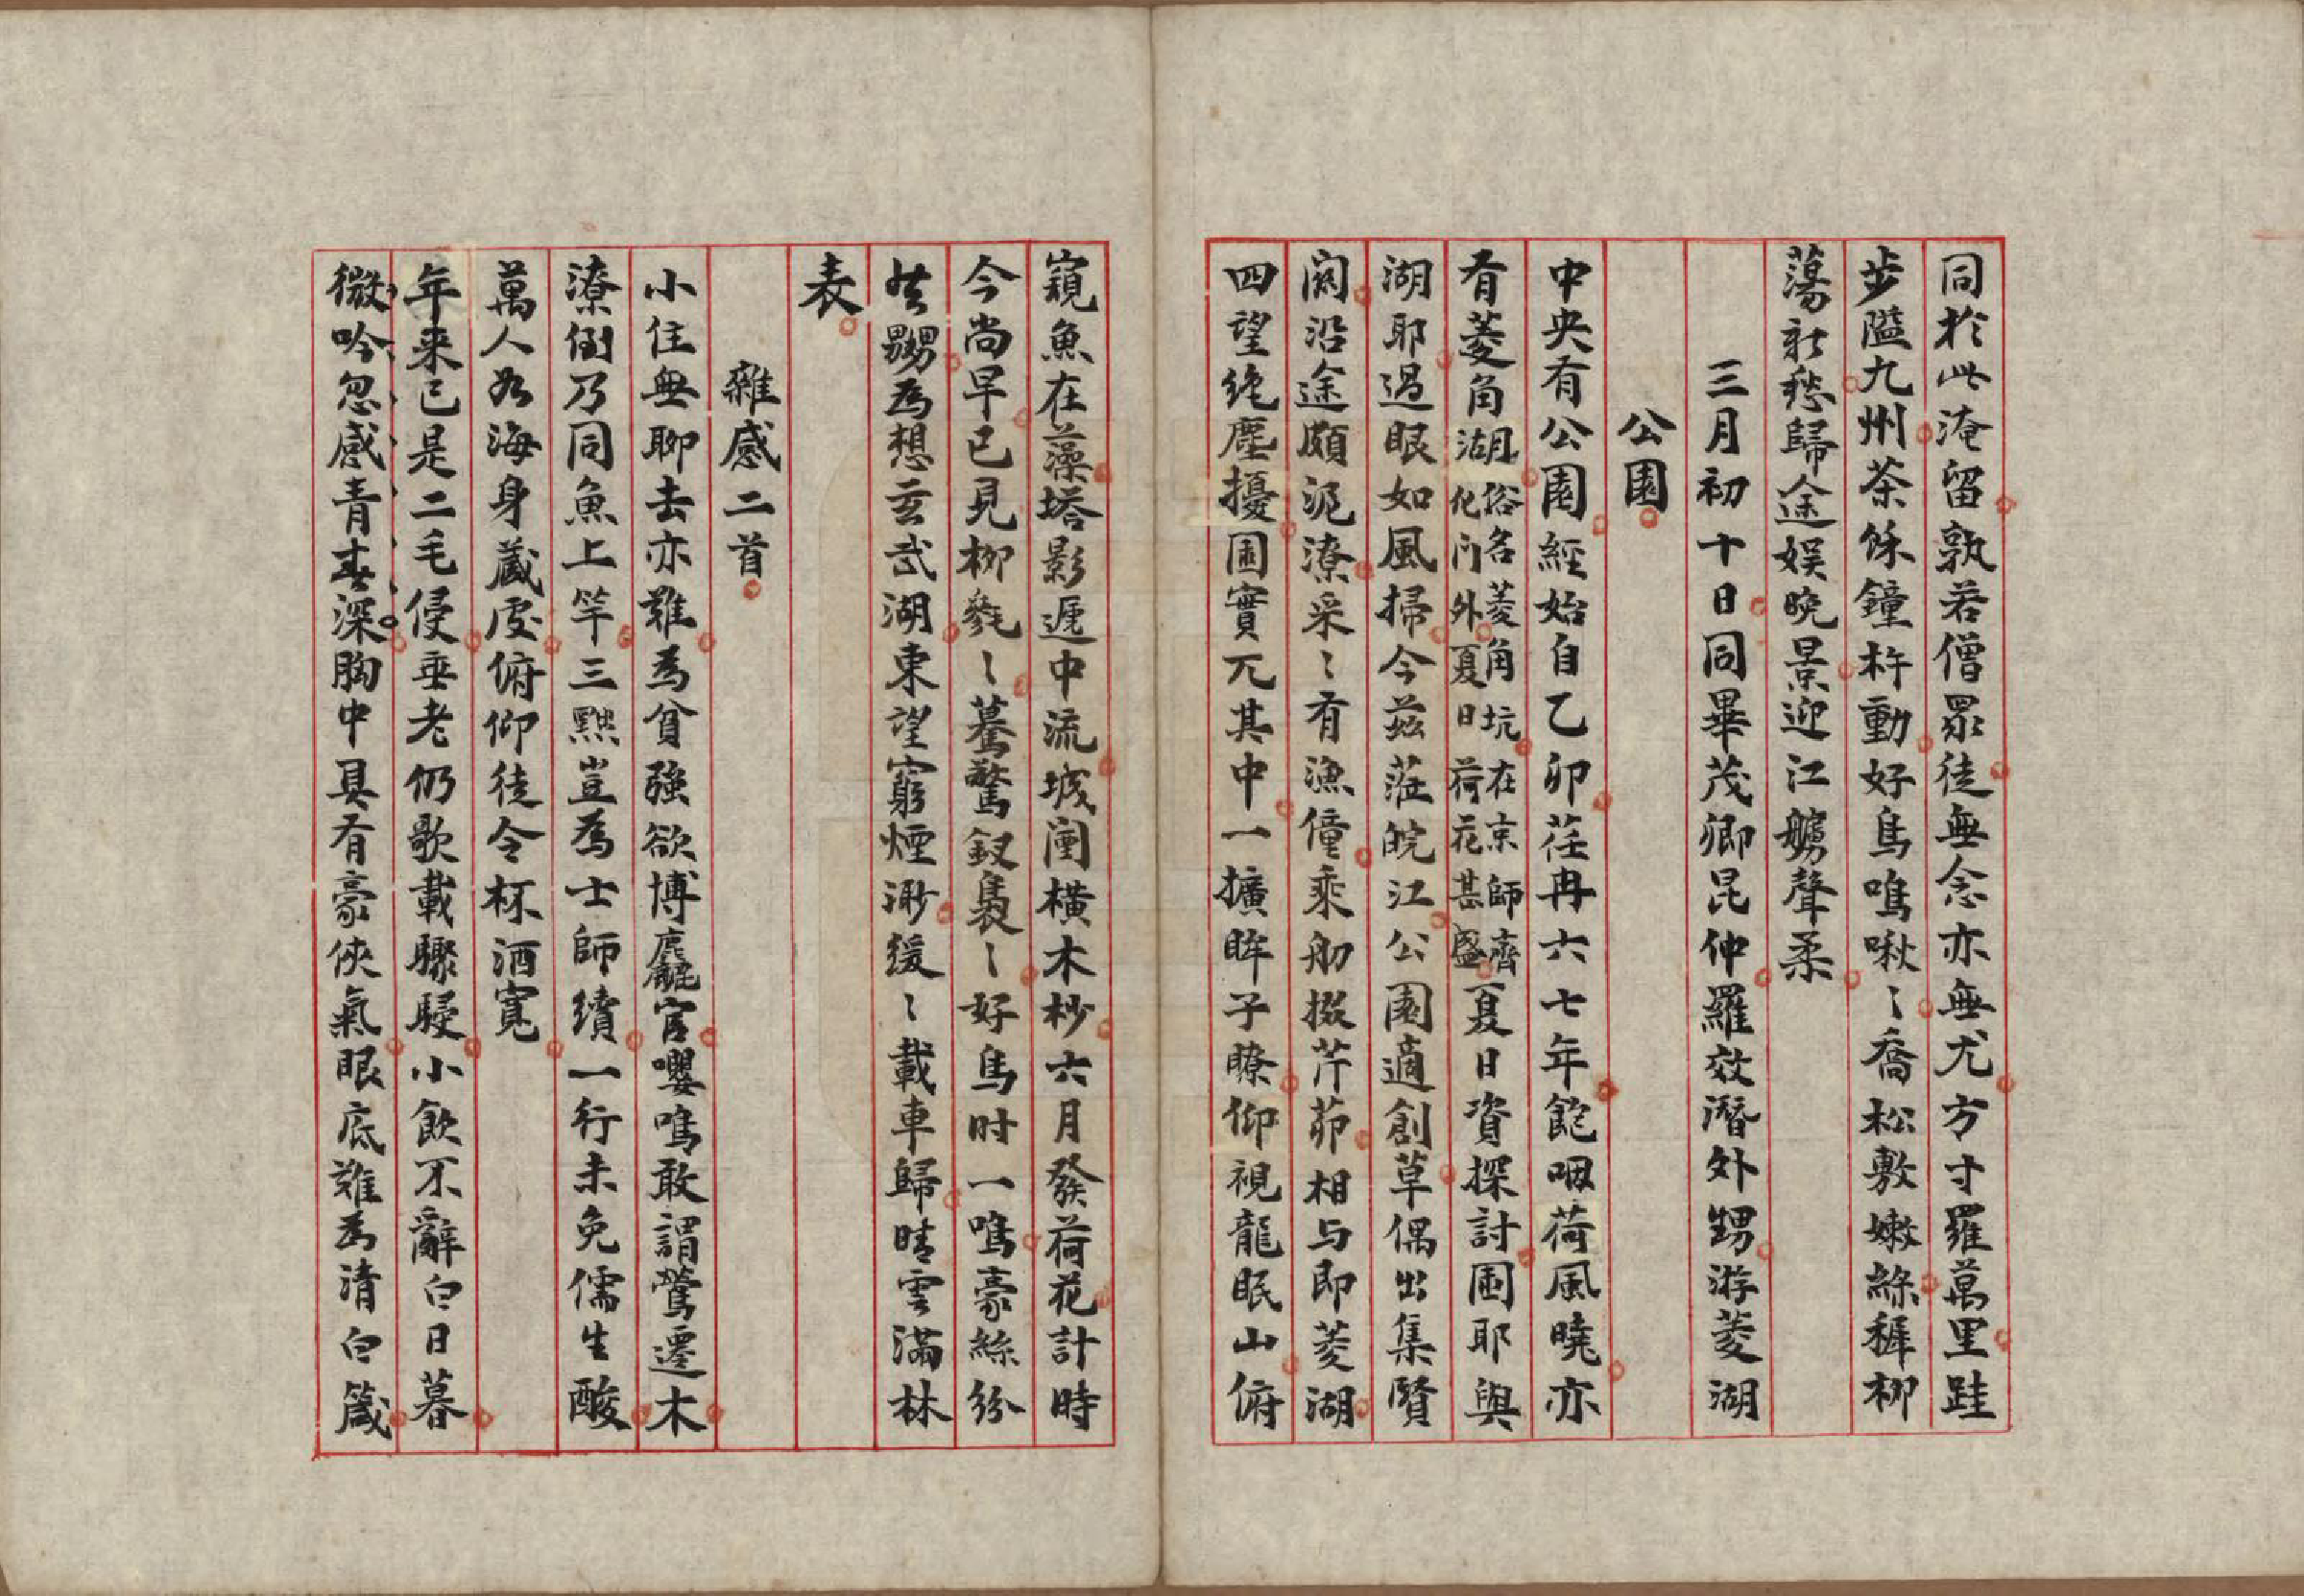 同於此淹留孰若僧眾徒無念亦無尤方寸羅萬里跬
步隘九州茶餘鐘杵動好鳥鳴啾〻喬松敷嫩綠稺柳
蕩新愁歸途娛晚景迎江艣聲柔
三月初十日同畢茂卿昆仲羅效潛外甥游菱湖
公園
中央有公園經始自乙卯荏冉六七年飽咽荷風曉亦
有菱角湖俗名菱角坑在京師齊化门外夏日荷花甚盛夏日資探討圃耶與
湖耶過眼如風掃今茲蒞皖江公園適創草偶出集賢
闕沿途頗泥潦采〻有漁僮乘舠掇芹茆相与即菱湖
四望絶塵擾園實亢其中一擴眸子瞭仰視龍眠山俯
窺魚在藻塔影遞中流城闉橫木杪六月發荷花計時
今尚早已見柳毿〻驀驚釵裊〻好鳥时一鳴豪絲紛
嬲為想玄武湖東望窮煙渺缓〻載車歸晴雲滿林
表
雜感二首
小住無聊去亦難為貧強欲博麤官嚶鳴敢謂鶯遷木
潦倒乃同魚上竿三黜豈為士師續一行未免儒生酸
萬人如海身藏處俯仰徒令杯酒寬
年来已是二毛侵垂老仍歌載驟駸小飲不辭白日暮
微吟忽感青春深胸中具有豪俠氣眼底難為清白箴